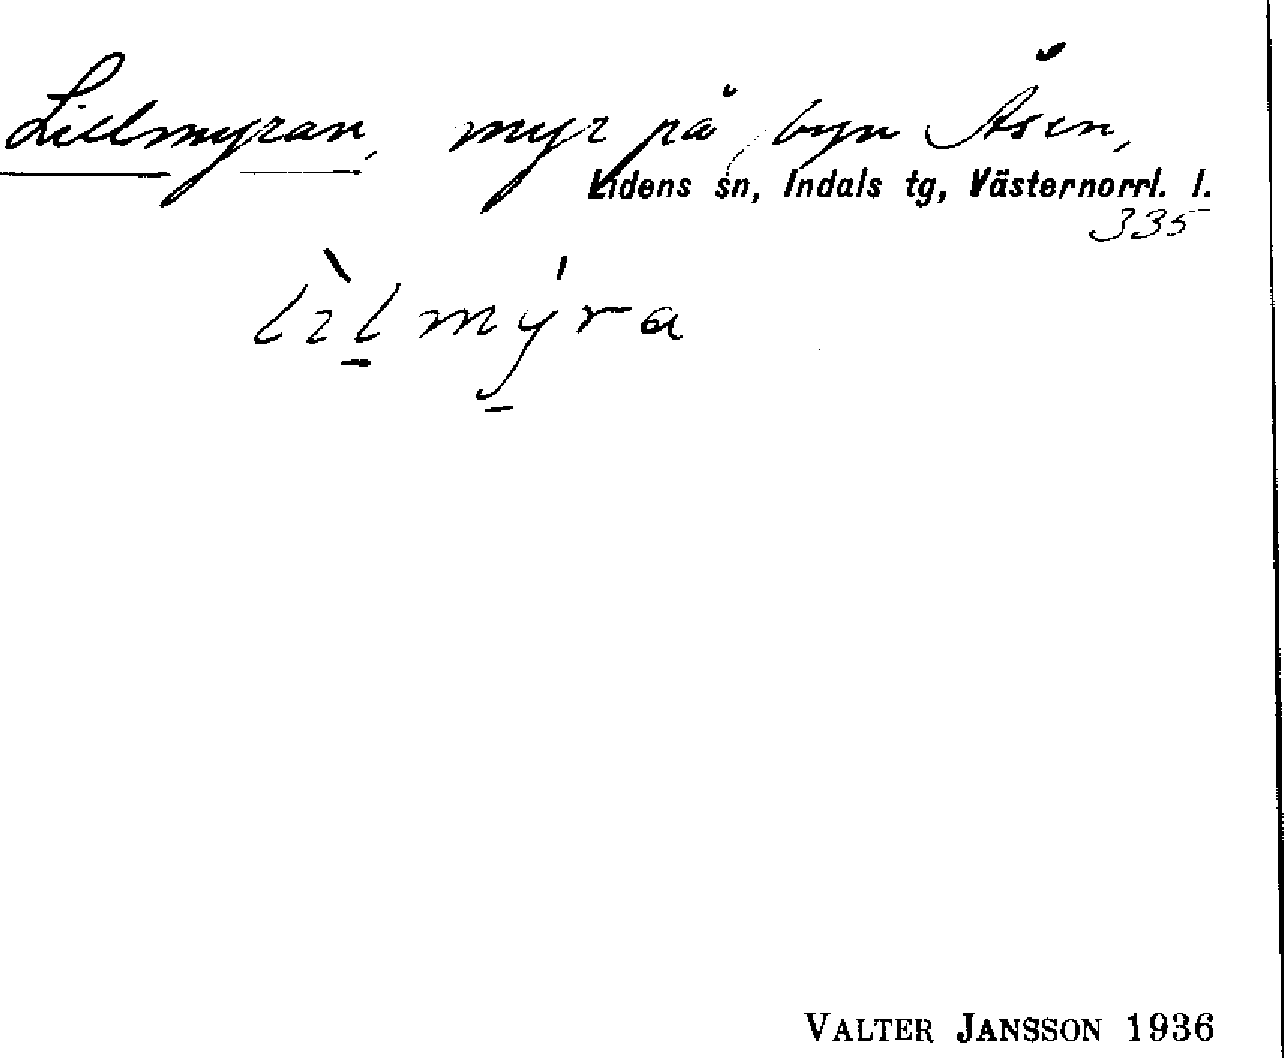 Lillmyran, myr på byn Åsen,
Lidens sn, Indals tg, Västernorrl. l.
335
lìlmýra
VALTER JANSSON 1936